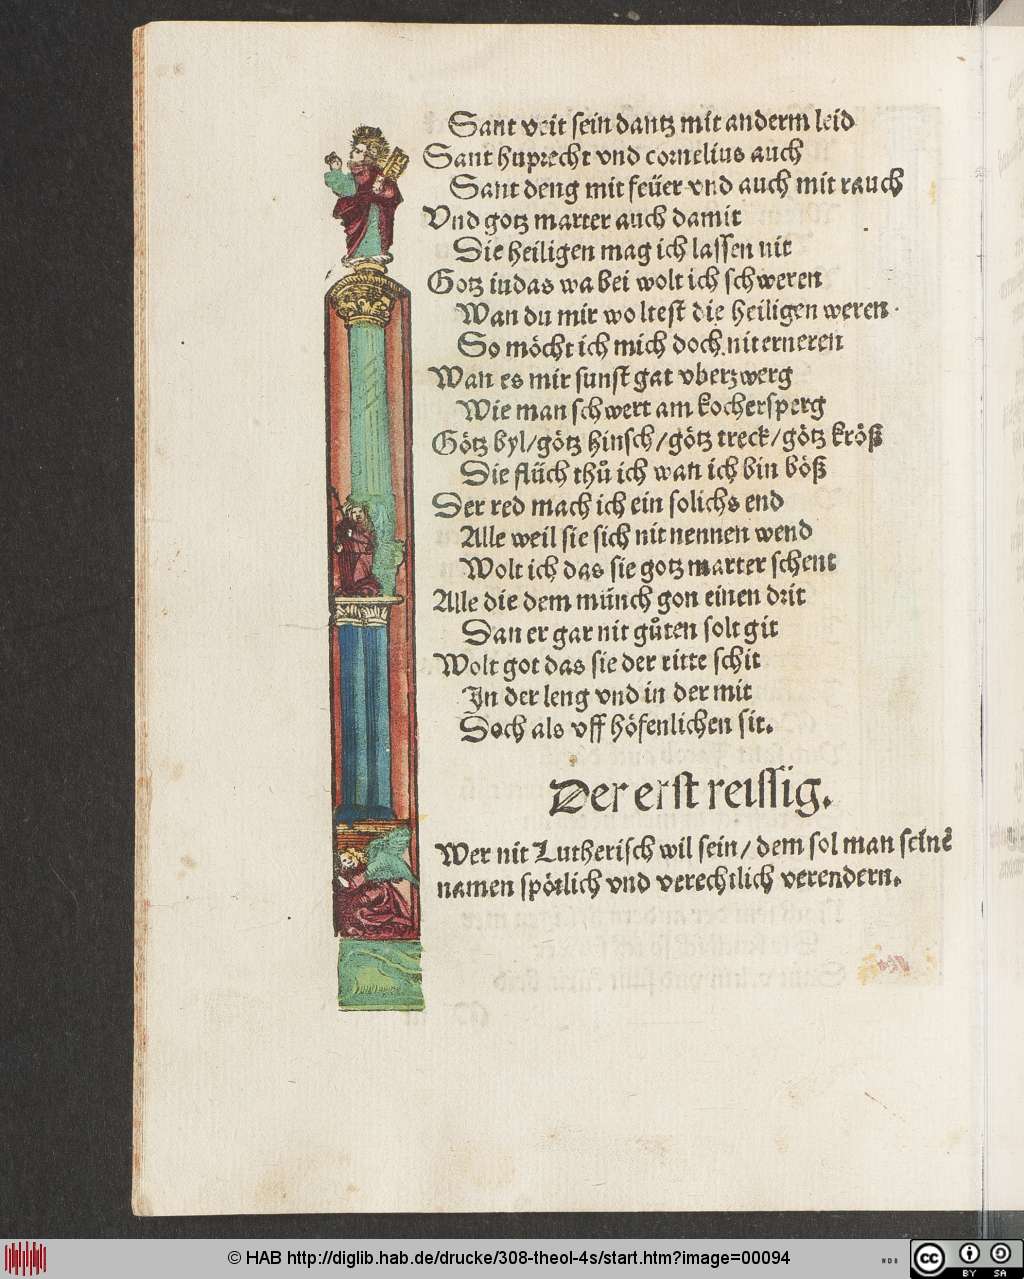 Sant veit sein dantz mit anderm leid
Sant huprecht vnd cornelius auch
Sant deng mit feüer vnd auch mit rauch
Vnd gotz marter auch damit
Die heiligen mag ich lassen nit
Gotz iudas wa bei wolt ich schweren
Wan du mir woltest die heiligen weren
So möcht ich mich doch nit erneren
Wan es mir sunst gat vberzwerg
Wie man schwert am kochersperg
Götz byl/götz hinsch/götz treck/götz kröß
Die flüch thů ich wan ich bin böß
Der red mach ich ein solichs end
Alle weil sie sich nit nennen wend
Wolt ich das sie gotz marter schent
Alle die dem münch gon einen drit
Dan er gar nit gůten solt git
Wolt got das sie der ritte schit
In der leng vnd in der mit
Doch als vff höfenlichen sit.
Der erst reissig.
Wer nit Lutherisch wil sein/ dem sol man seinē
namen spötlich vnd verechtlich verendern.
© HAB http://diglib.hab.de/drucke/308-theol-4s/start.htm?image=00094
WDB
cc BY SA